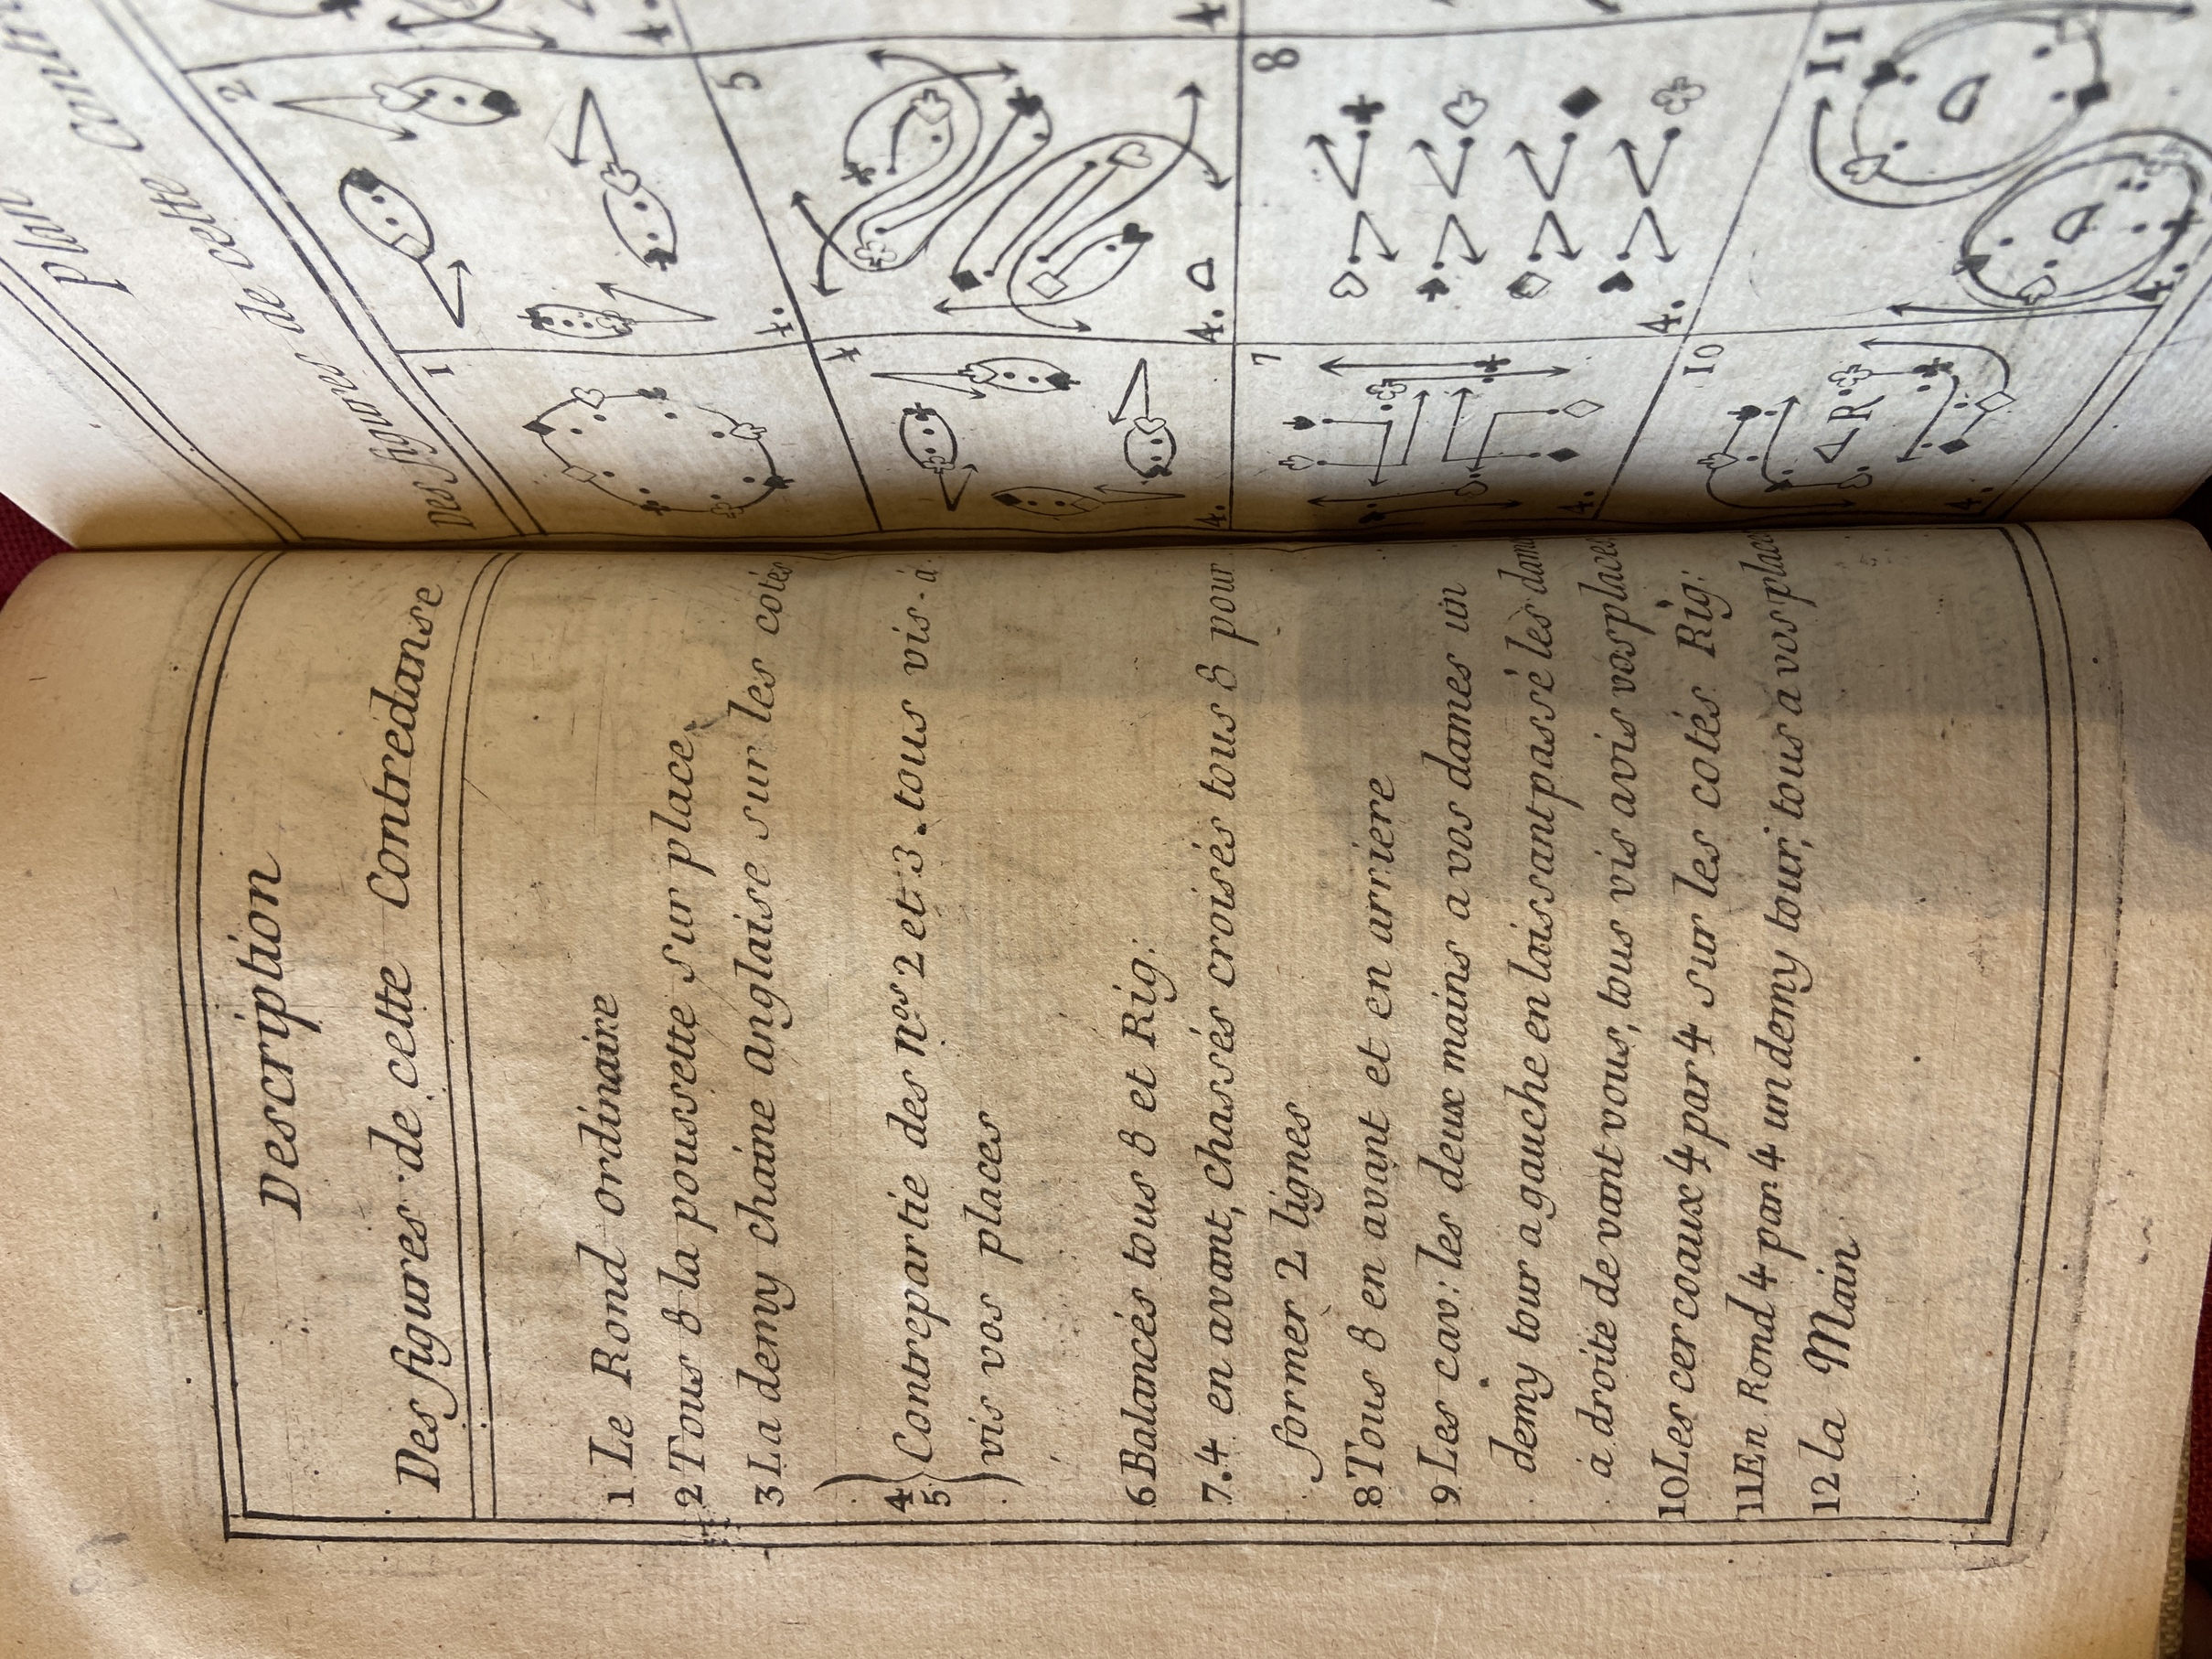 Description
Des figures de cette Contredanse
1 Le Rond ordinaire
2 Tous 8 la poussette sur place
3 La demy chaine anglaise sur les cotés
4
5
Contrepartie des nos 2 et 3. tous vis-à
vis vos places
6 Balancés tous 8 et Rig:
7. 4 en avant, chassés croisés tous 8 pour
former 2 lignes
8 Tous 8 en avant et en arriere
9 Les cav: les deux mains a vos dames un
demy tour a gauche en laissant passé les dam
à droite devant vous, tous vis avis vos places
10 Les cercoaux 4 par 4 sur les cotés Rig:
11 En Rond 4 par 4 un demy tour, tous a vos place
12 la Main
plan
Des figures de cette Contr
1
2
4.
4.
4
5
4.
4.
4
7
8
4.
4.
10
11
R
4.
4.